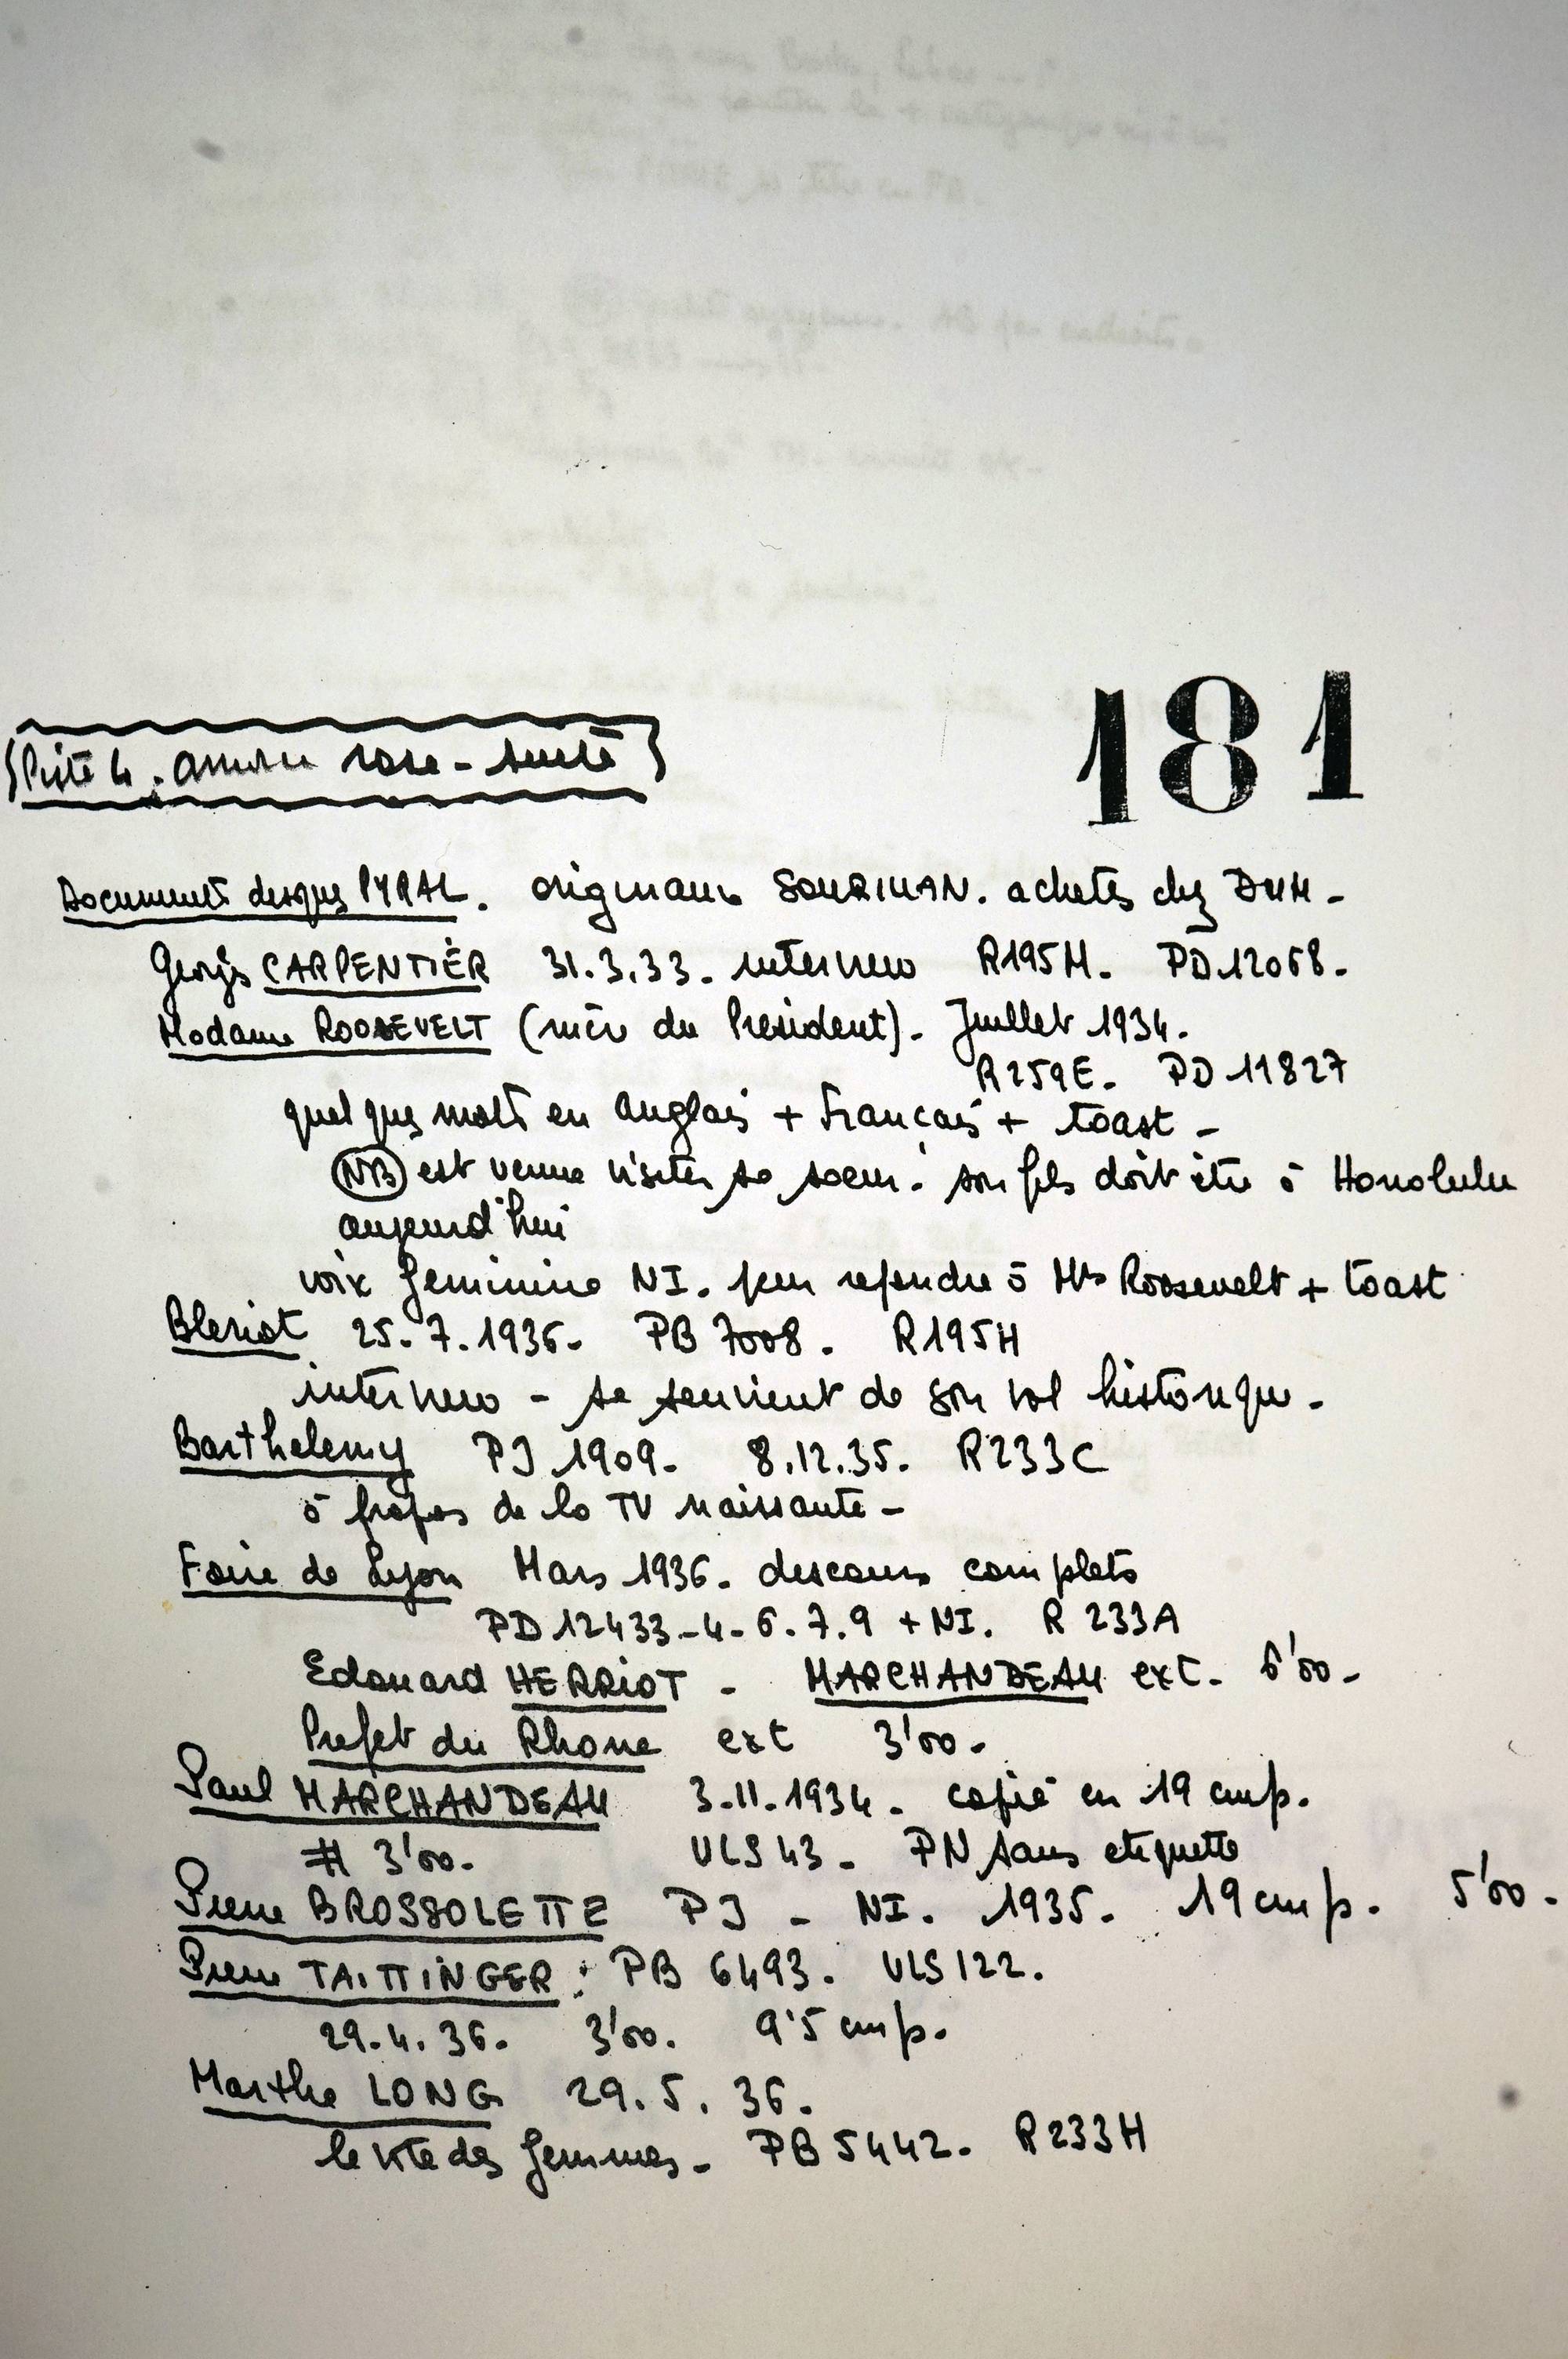 181
Piste 4. amorce rose - suite
Documents disques PYRAL. originaux SOURIMAN. achetés chez DUM -
Georges CARPENTIER 31.3.33. interview R195H. PD 12068.
Madame ROOSEVELT (mère du Président). Juillet 1934.
R259E. PD 11827
quelques mots en anglais + français + toast -
NB est venue visiter sa soeur. son fils doit être à Honolulu
aujourd'hui
voix feminine NI. pour repondre à Mrs Roosevelt + toast
Bleriot 25.7.1936. PB 7008. R195H
interview - se souvient de son vol historique.
Barthelemy PJ 1909. 8.12.35. R233C
à propos de la TV naissante -
Foire de Lyon Mars 1936. discours complets
PD 12433-4-6.7.9 + NI. R 233A
Edouard HERRIOT - MARCHANDEAU ext. 6'00 -
Prefet du Rhone ext 3'00 -
Paul MARCHANDEAU 3.11.1934. copié en 19 cmp.
# 3'00. ULS 43 - PN sans etiquette
Pierre BROSSOLETTE PJ - NI. 1935. 19 cmp. 5'00 -
Pierre TAITTINGER : PB 6493. ULS 122.
29.4.36. 3'00. 9'5 cmp.
Marthe LONG 29.5.36.
le vote des femmes - PB 5442. R233H